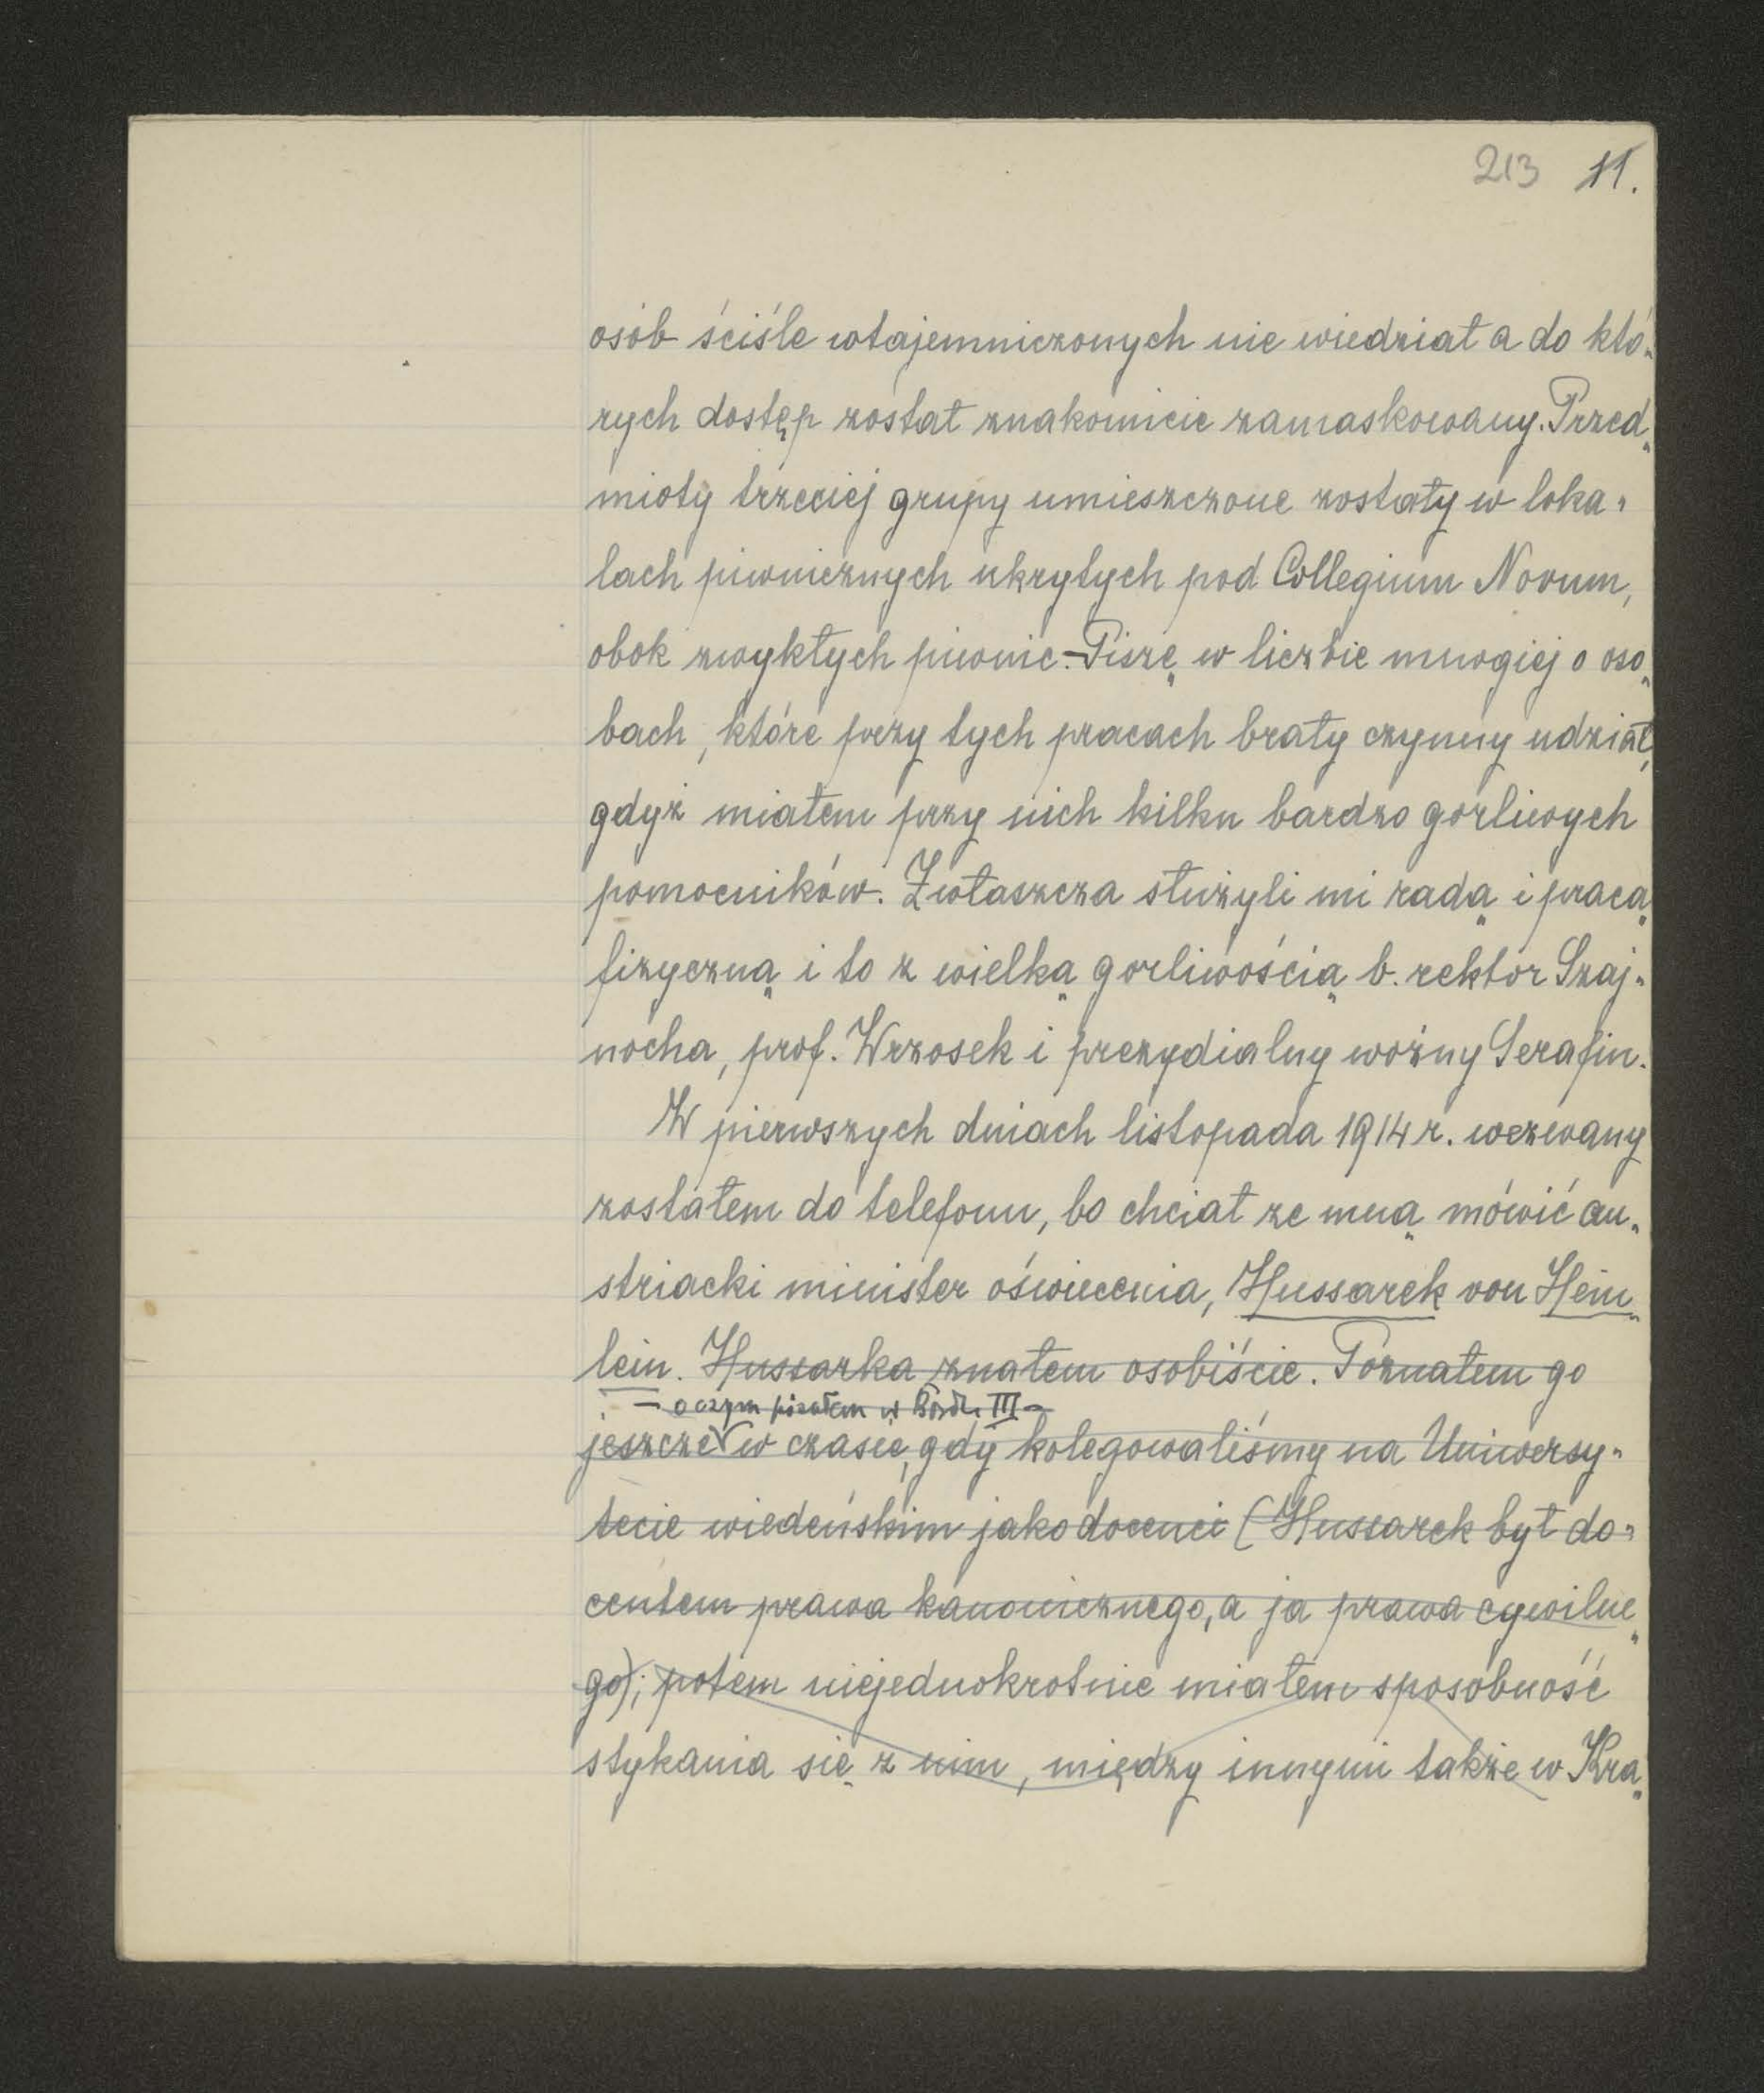 213 11.
osób ściśle wtajemniczonych nie wiedział a do któ-
rych dostęp został znakomicie zamaskowany. Przed-
mioty trzeciej grupy umieszczone zostały w loka-
lach piwnicznych ukrytych pod Collegium Novum,
obok zwykłych piwnic.-Piszę w liczbie mnogiej o oso-
bach, które przy tych pracach brały czynny udział,
gdyż miałem przy nich kilku bardzo gorliwych
pomocników. Zwłaszcza służyli mi radą i pracą
fizyczną i to z wielką gorliwością b. rektor Szaj-
nocha, prof. Wrzosek i prezydialny woźny Serafin.
W pierwszych dniach listopada 1914 r. wezwany
zostałem do telefonu, bo chciał ze mną mówić au-
striacki minister oświecenia, Hussarek von Hein-
lein. Hussarka znałem osobiście. Poznałem go
- o czym pisałem w III -
jeszcze w czasie, gdy kolegowaliśmy na Uniwersy-
tecie wiedeńskim jako docenci (Hussarek był do-
centem prawa kanonicznego, a ja prawa cywilne-
go); potem niejednokrotnie miałem sposobność
stykania się z nim, między innymi także w Kra-